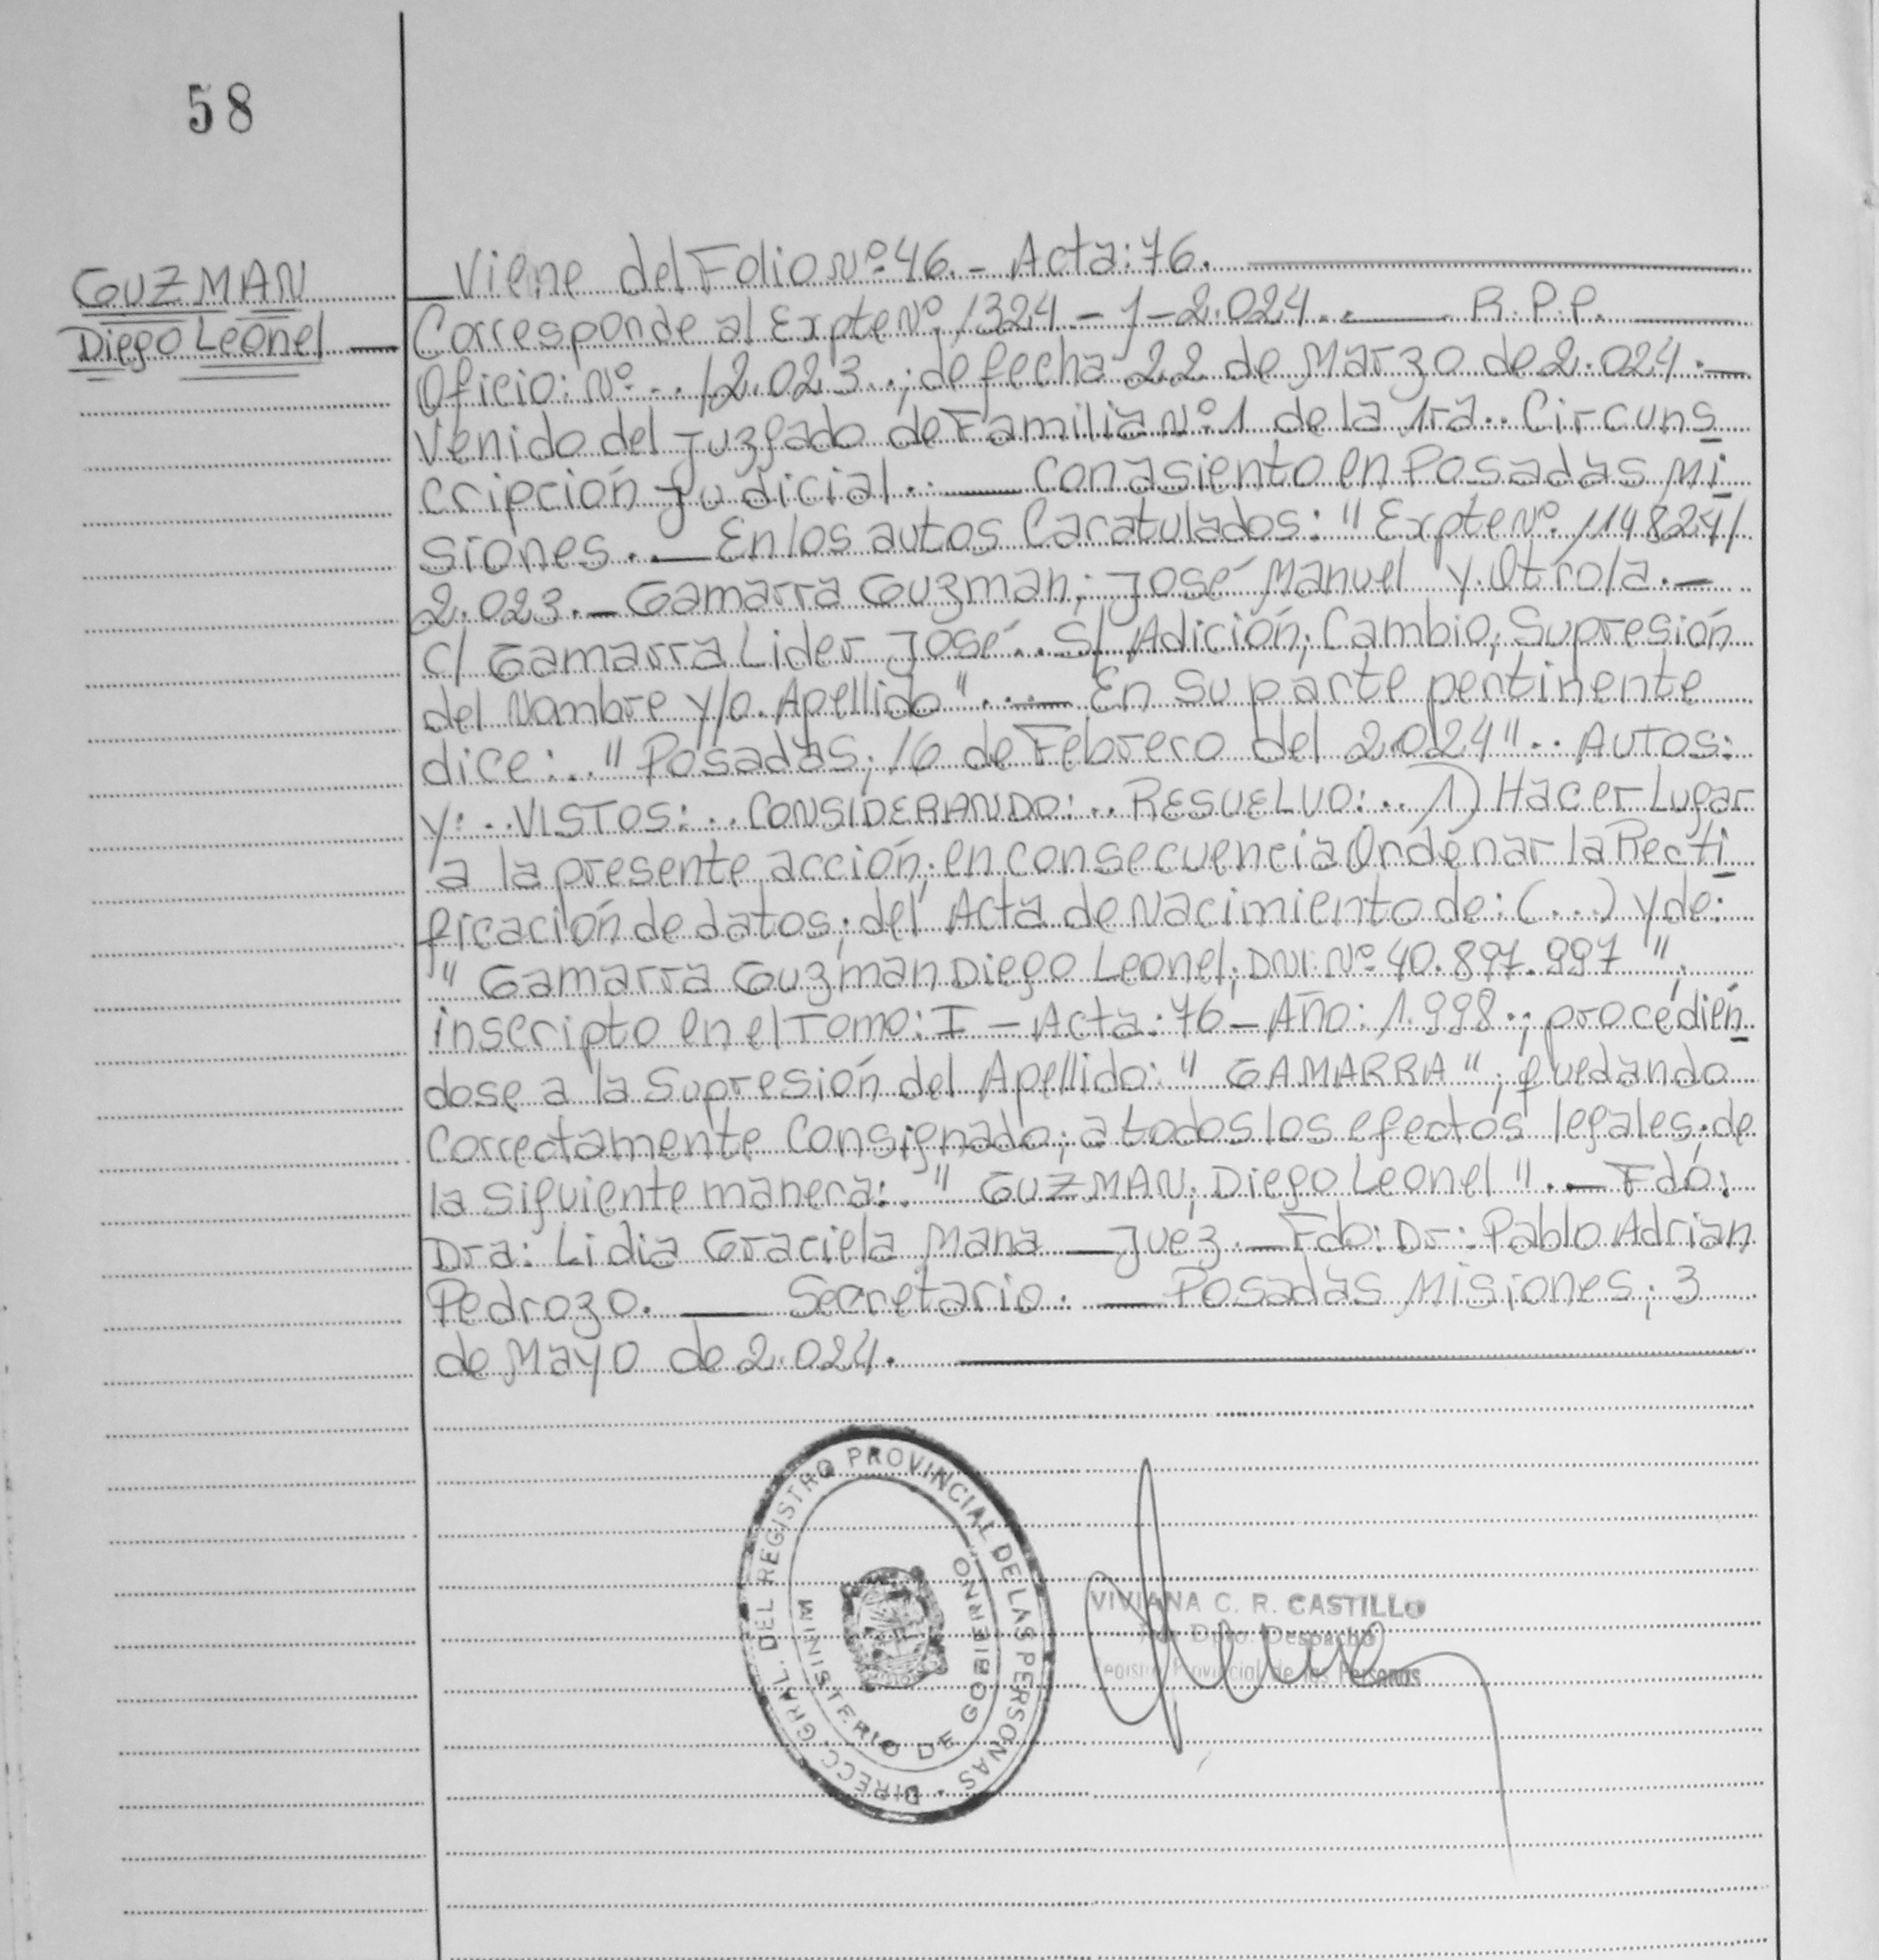 58
GUZMAN
Diego Leonel —
— Viene del Folio Nº: 46. - Acta: 76. —
Corresponde al Expte Nº 1324 - J - 2.024.. — R.P.P. —
Oficio: Nº.. /2.023..; de fecha 22 de Marzo de 2.024.—
Venido del Juzgado de Familia Nº: 1 de la 1ra.. Circuns
cripción Judicial.. — Con asiento en Posadas Mi
siones.. — En los autos Caratulados: " Expte Nº. 114824/
2.023. — Gamarra Guzman; José Manuel y. Otro/a. —
c/ Gamarra Lider José.. S/ Adición; Cambio; Supresión
del Nombre y/o. Apellido "... — En Su parte pertinente
dice:.. " Posadas; 16 de Febrero del 2.024 ".. AUTOS:
y:.. VISTOS:.. CONSIDERANDO:.. RESUELVO:.. 1) Hacer Lugar
a la presente acción; en consecuencia Ordenar la Recti
ficación de datos; del Acta de Nacimiento de: (...) y de:
" Gamarra Guzman Diego Leonel; DNI: Nº 40.897.997 ";
inscripto en el Tomo: I - Acta: 76 - Año: 1.998.; procedién
dose a la Supresión del Apellido: " GAMARRA "; quedando
Correctamente Consignado; a todos los efectos legales; de
la siguiente manera:. " GUZMAN; Diego Leonel ". — Fdo:
Dra: Lidia Graciela Mana — Juez. — Fdo: Dr: Pablo Adrian
Pedrozo. — Secretario. — Posadas Misiones; 3
de Mayo de 2.024. —
DIRECC. GRAL. DEL REGISTRO PROVINCIAL DE LAS PERSONAS •
MINISTERIO DE GOBIERNO
VIVIANA C. R. CASTILLO
Dpto. Despacho
Registro Provincial de las Personas